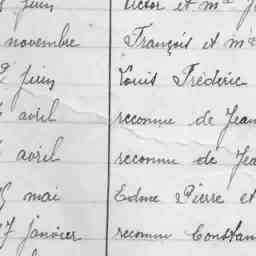 juin Victor et m
novembre François et me
2 juin Louis Frédéric
avril reconnu de Jean
avril reconnu de Jea
mai Edme Pierre et
7 janvier reconnu Constan